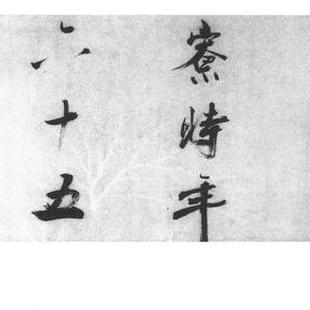 寮時年
六十五